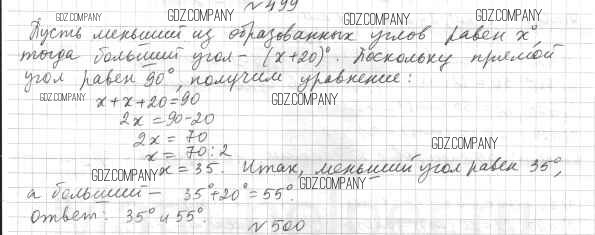 №499
GDZ.COMPANY GDZ.COMPANY GDZ.COMPANY
Пусть меньший из образованных углов равен x°,
тогда больший угол – (x+20)°. Поскольку прямой
GDZ.COMPANY GDZ.COMPANY
угол равен 90°, получим уравнение:
GDZ.COMPANY GDZ.COMPANY
x+x+20=90
2x=90-20
2x=70
GDZ.COMPANY
x=70:2
GDZ.COMPANY
x=35. Итак, меньший угол равен 35°,
GDZ.COMPANY
а больший – 35°+20°=55°.
ответ: 35° и 55°.
№500